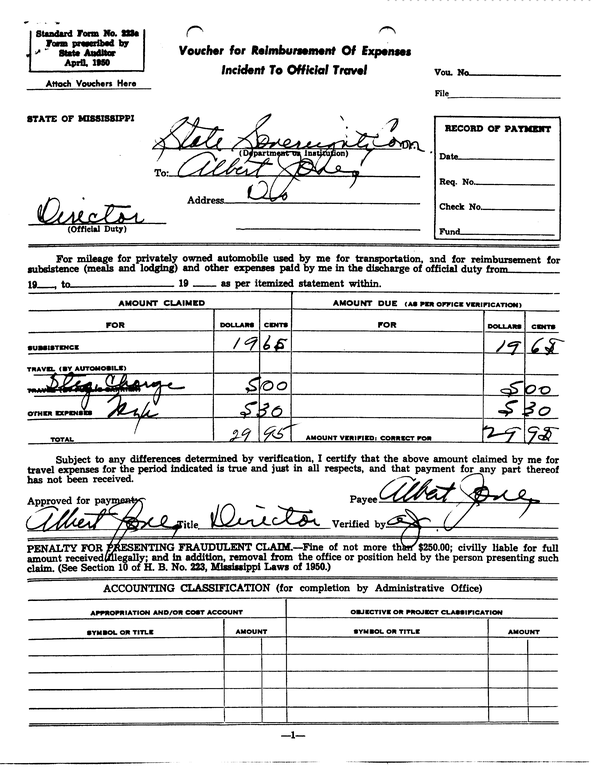 Standard Form No. 223a
Form prescribed by
State Auditor
April, 1950
Attach Vouchers Here
Voucher for Reimbursement Of Expenses
Incident To Official Travel
Vou. No.
File
STATE OF MISSISSIPPI
State Sovereignty Com
(Department or Institution)
To: Albert Jones
Address Do
Director
(Official Duty)
RECORD OF PAYMENT
Date
Req. No.
Check No.
Fund
For mileage for privately owned automobile used by me for transportation, and for reimbursement for
subsistence (meals and lodging) and other expenses paid by me in the discharge of official duty from
19 , to 19 as per itemized statement within.
AMOUNT CLAIMED AMOUNT DUE (AS PER OFFICE VERIFICATION)
FOR DOLLARS CENTS FOR DOLLARS CENTS
SUBSISTENCE 19 65 19 65
TRAVEL (BY AUTOMOBILE)
Charge 5 00 5 00
OTHER EXPENSES 5 30 5 30
TOTAL 29 95 AMOUNT VERIFIED: CORRECT FOR 29 95
Subject to any differences determined by verification, I certify that the above amount claimed by me for
travel expenses for the period indicated is true and just in all respects, and that payment for any part thereof
has not been received.
Payee Albert Jones
Approved for payment:
Albert Jones Title Director Verified by aj
PENALTY FOR PRESENTING FRAUDULENT CLAIM.—Fine of not more than $250.00; civilly liable for full
amount received illegally; and in addition, removal from the office or position held by the person presenting such
claim. (See Section 10 of H. B. No. 223, Mississippi Laws of 1950.)
ACCOUNTING CLASSIFICATION (for completion by Administrative Office)
APPROPRIATION AND/OR COST ACCOUNT OBJECTIVE OR PROJECT CLASSIFICATION
SYMBOL OR TITLE AMOUNT SYMBOL OR TITLE AMOUNT
—1—